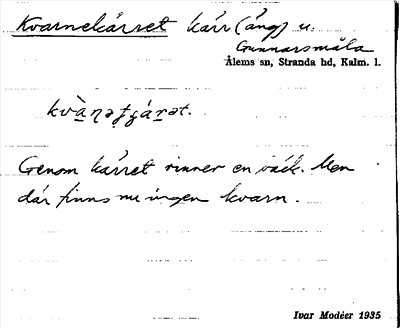 Kvarnekärret kärr (äng) u.
Gunnarsmåla
Ålems sn, Stranda hd, Kalm. l.
Genom kärret rinner en bäck. Men
där finns nu ingen kvarn.
Ivar Modéer 1935